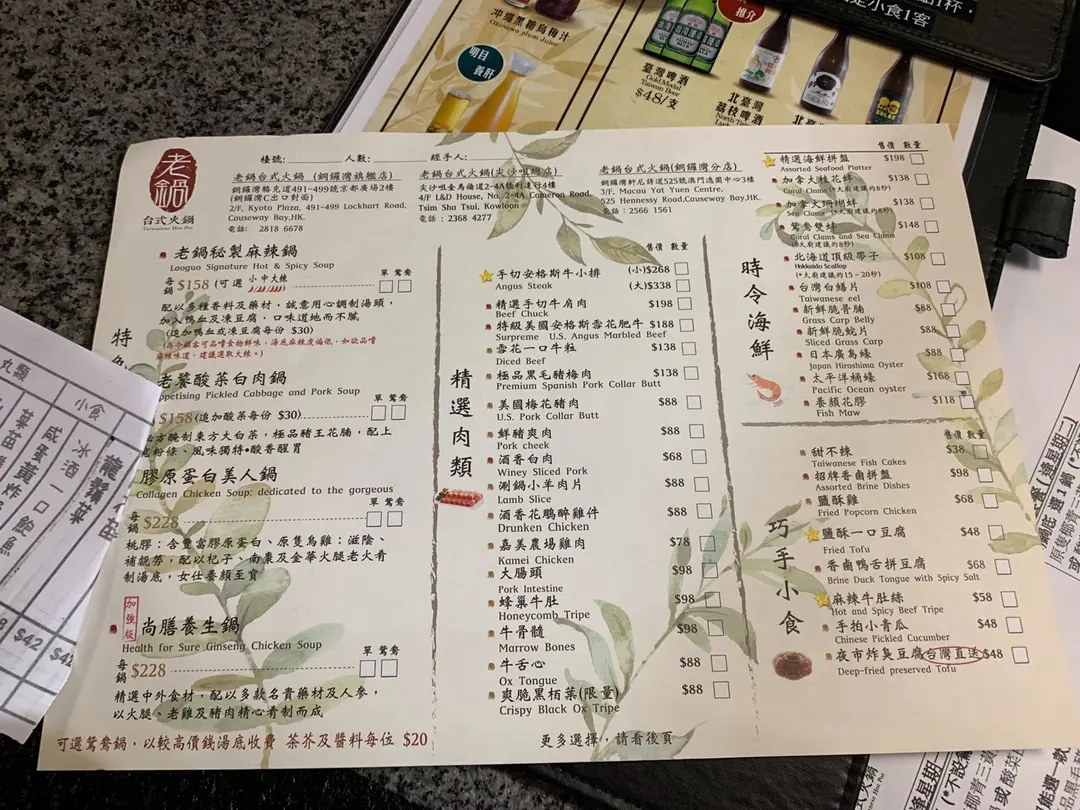 沖繩黑糖烏梅汁
Okinawa plum Juice
明目
養肝
臺灣啤酒
Gold Medal
Taiwan Beer
$48/支
推介
北臺灣
荔枝啤酒
是小食1客
老鍋
台式火鍋
Taiwanese Hot Pot
檯號:
人數:
經手人:
老鍋台式火鍋 (銅鑼灣旗艦店)
銅鑼灣駱克道491-499號京都廣場2樓
(銅鑼灣C出口對面)
2/F, Kyoto Plaza, 491-499 Lockhart Road,
Causeway Bay,HK.
電話: 2818 6678
老鍋台式火鍋(尖沙咀總店)
尖沙咀金馬倫道2-4A號利達行4樓
4/F L&D House, No. 2-4A Cameron Road,
Tsim Sha Tsui, Kowloon
電話 : 2368 4277
老鍋台式火鍋(銅鑼灣分店)
銅鑼灣軒尼詩道525號澳門逸園中心3樓
3/F, Macau Yat Yuen Centre,
525 Hennessy Road,Causeway Bay,HK.
電話 : 2566 1561
老鍋秘製麻辣鍋
Laoguo Signature Hot & Spicy Soup
單 鴛鴦
每鍋 $158 (可選 小 中 大辣)
配以多種香料及藥材，誠意用心調制湯頭，
加入鴨血及凍豆腐，口味道地而不膩
(追加鴨血或凍豆腐每份 $30)
(為令顧客可品嚐食物鮮味，湯底麻辣度偏低，如欲品嚐
麻辣味道，建議選取大辣。)
老饕酸菜白肉鍋
petising Pickled Cabbage and Pork Soup
單 鴛鴦
$158(追加酸菜每份 $30)
方醃制東方大白菜，極品豬王花腩，配上
粉條、風味獨特•酸香醒胃
膠原蛋白美人鍋
Collagen Chicken Soup: dedicated to the gorgeous
單 鴛鴦
每鍋 $228
桃膠：含豐富膠原蛋白、原隻烏雞：滋陰、
補虛勞，配以杞子、南棗及金華火腿老火肴
制湯底，女仕養顏至寶
加強版
尚膳養生鍋
Health for Sure Ginseng Chicken Soup
單 鴛鴦
每鍋 $228
精選中外食材，配以多款名貴藥材及人參，
以火腿、老雞及豬肉精心肴制而成
可選鴛鴦鍋，以較高價錢湯底收費 茶芥及醬料每位 $20
精選肉類
售價 數量
手切安格斯牛小排 (小)$268
Angus Steak (大)$338
精選手切牛肩肉 $198
Beef Chuck
特級美國安格斯雪花肥牛 $188
Surpreme U.S. Angus Marbled Beef
雪花一口牛粒 $138
Diced Beef
極品黑毛豬梅肉 $138
Premium Spanish Pork Collar Butt
美國梅花豬肉 $88
U.S. Pork Collar Butt
鮮豬爽肉 $88
Pork cheek
酒香白肉 $68
Winey Sliced Pork
涮鍋小羊肉片 $88
Lamb Slice
酒香花鵰醉雞件 $88
Drunken Chicken
嘉美農場雞肉 $78
Kamei Chicken
大腸頭 $98
Pork Intestine
蜂巢牛肚 $98
Honeycomb Tripe
牛骨髓 $98
Marrow Bones
牛舌心 $88
Ox Tongue
爽脆黑栢葉(限量) $88
Crispy Black Ox Tripe
更多選擇，請看後頁
時令海鮮
售價 數量
精選海鮮拼盤 $198
Assorted Seafood Platter
加拿大桂花蚌 $138
Coral Clams (*大廚建議約8秒)
加拿大珊瑚蚌 $138
Sea Clams (*大廚建議約8秒)
鴛鴦雙蚌 $148
Coral Clams and Sea Clams
(*大廚建議約8秒)
北海道頂級帶子 $108
Hokkaido Scallop
(*大廚建議約15-20秒)
台灣白鱔片 $108
Taiwanese eel
新鮮脆骨腩 $88
Grass Carp Belly
新鮮脆鯇片 $88
Sliced Grass Carp
日本廣島蠔 $88
Japan Hiroshima Oyster
太平洋桶蠔 $168
Pacific Ocean oyster
養顏花膠 $118
Fish Maw
巧手小食
售價 數量
甜不辣 $38
Taiwanese Fish Cakes
招牌香滷拼盤 $98
Assorted Brine Dishes
鹽酥雞 $68
Fried Popcorn Chicken
鹽酥一口豆腐 $48
Fried Tofu
香鹵鴨舌拼豆腐 $68
Brine Duck Tongue with Spicy Salt
麻辣牛肚絲 $58
Hot and Spicy Beef Tripe
手拍小青瓜 $48
Chinese Pickled Cucumber
夜市炸臭豆腐台灣直送 $48
Deep-fried preserved Tofu
丸類
小食
冰酒一口鮑魚
龍鬚菜
$42